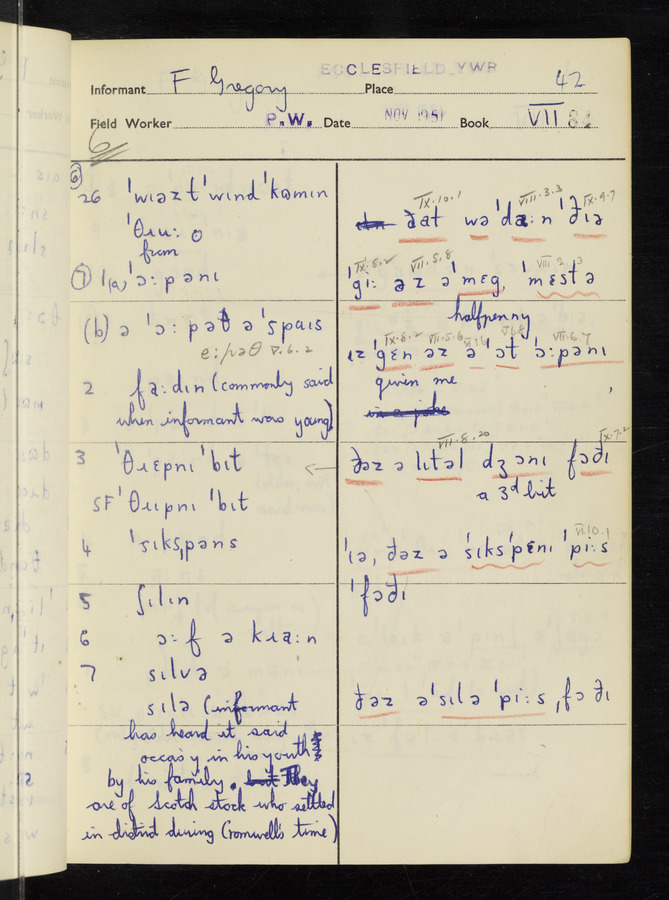 ECCLESFIELD YWR
Informant F Gregory Place 42
Field Worker P.W. Date NOV 1951 Book VII 8
6
6
26 ˈwɪəzt ˈwɪnd ˈkɷmɪn
ˈθɪɪ: o
from
7 1(a) ˈɔ:pənɪ
(b) ə ˈɔ:pəθ əˈspaɪs
e:pəθ V.6.2
2 fa:dɪn (commonly said
when informant was young)
3 ˈθɪɛpnɪ ˈbɪt
SF ˈθɪɪpnɪ ˈbɪt
4 ˈsɪksˌpəns
5 ʃɪlɪn
6 ɔ:f ə kɪa:n
7 sɪlvə
sɪlə (informant
has heard it said
occas'y in his youth
by his family. They
are of Scotch stock who settled
in district during Cromwell's time)
IX.10.1 VIII.3.3 IX.9.7
ðat wəˈda:n ˈðɪə
IX.8.2 VII.5.8 VIII.2.3
ˈgi: əz əˈmɛg, ˈmɛstə
halfpenny
IX.8.2 VII.5.6 VII.6.7
ɪz ˈgɛn əz ə ˈɔt ˈɔ:pənɪ
given me
in a poke
VII.8.20 IX.7.2
ðəz ə lɪtəl dʒɔnɪ fəðɪ
a 3d bit
VI.10.1
ˈɪə, ðəz ə ˈsɪksˈpɛnɪ ˈpi:s
ˈfəðɪ
ðəz əˈsɪlə ˈpi:s, fə ðɪ